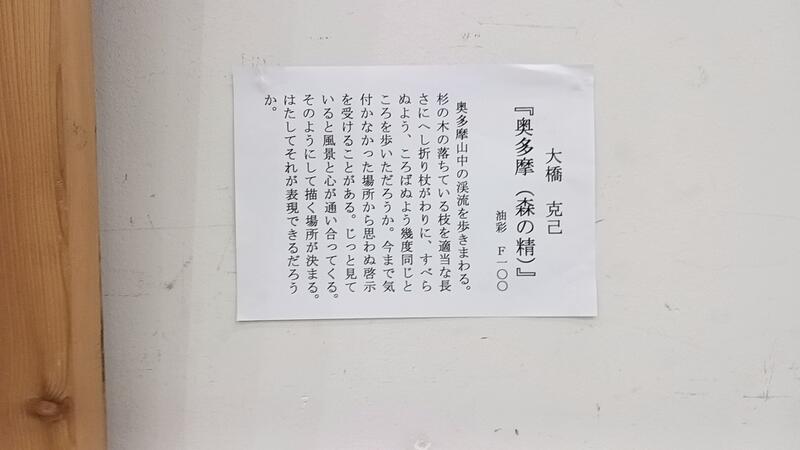 大橋 克己
『奥多摩（森の精）』
油彩 F一〇〇
奥多摩山中の渓流を歩きまわる。
杉の木の落ちている枝を適当な長
さにへし折り杖がわりに、すべら
ぬよう、ころばぬよう幾度同じと
ころを歩いただろうか。今まで気
付かなかった場所から思わぬ啓示
を受けることがある。じっと見て
いると風景と心が通い合ってくる。
そのようにして描く場所が決まる。
はたしてそれが表現できるだろう
か。